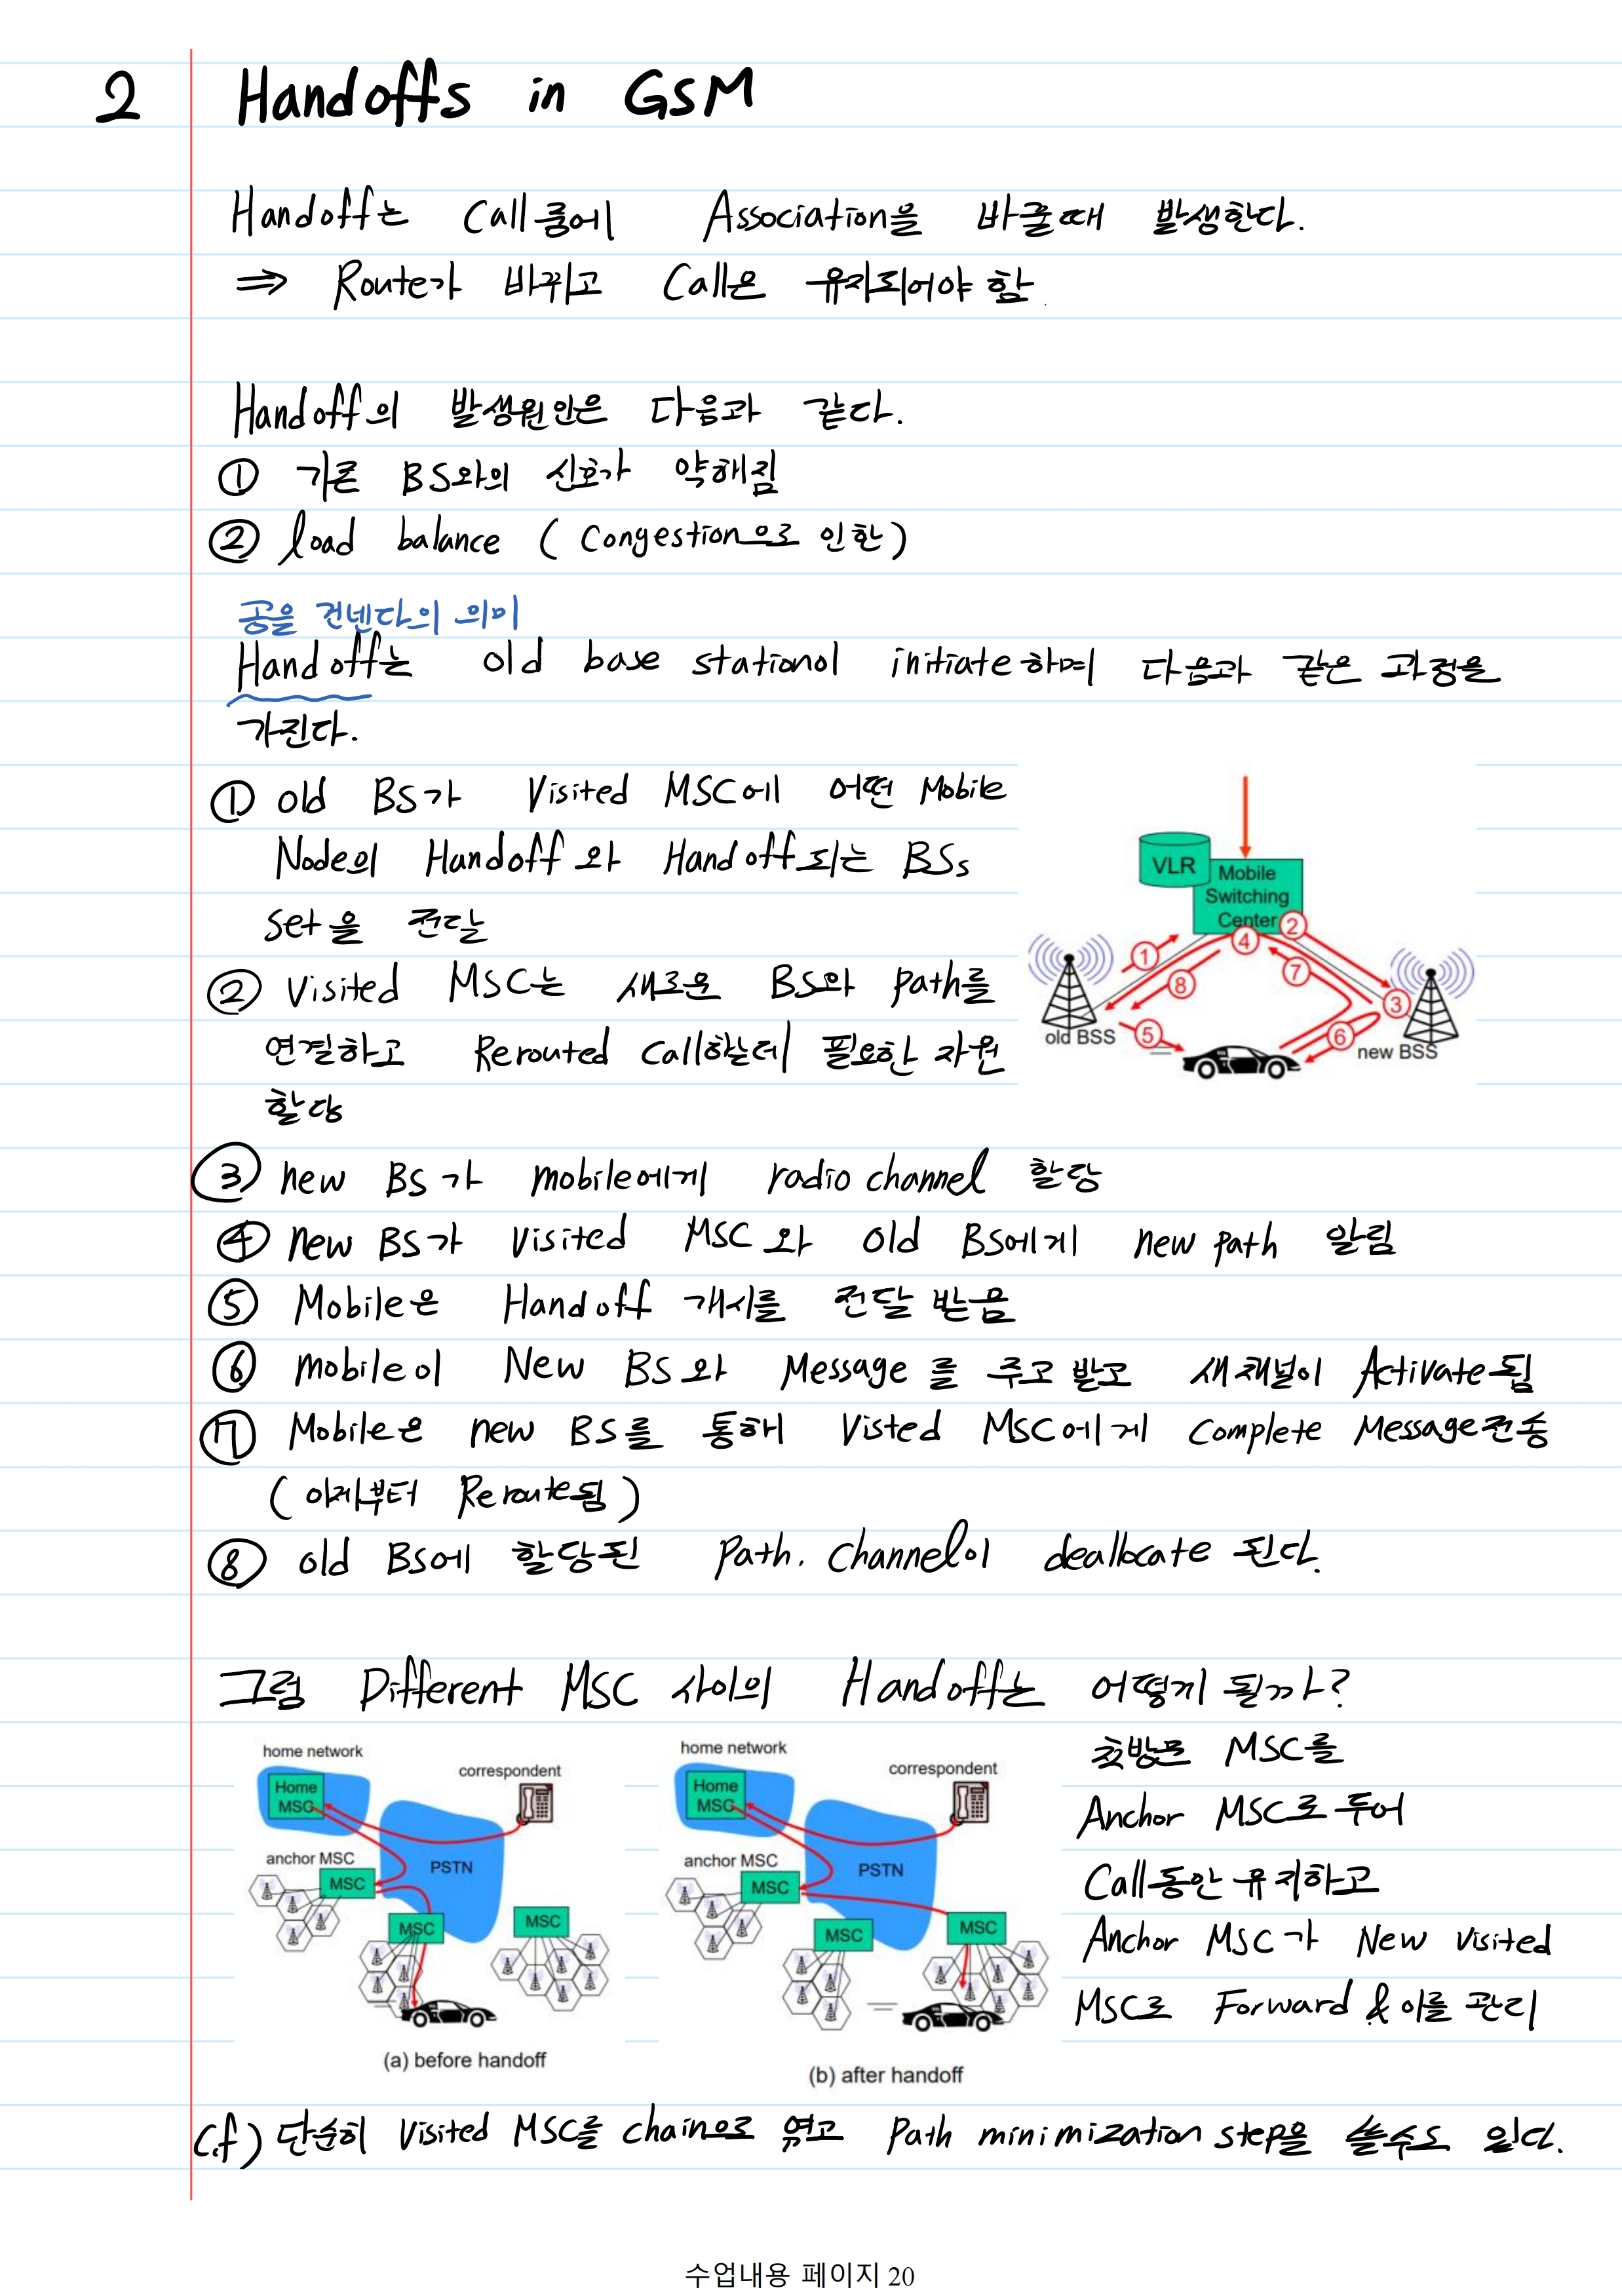 2 Handoffs in GSM
Handoff는 Call 중에 Association을 바꿀때 발생한다.
⇒ Route가 바뀌고 Call은 유지되어야 함.
Handoff의 발생원인은 다음과 같다.
① 기존 BS와의 신호가 약해짐
② load balance (Congestion으로 인한)
공을 건넨다의 의미
Handoff는 old base station이 initiate하며 다음과 같은 과정을
가진다.
① old BS가 Visited MSC에 어떤 Mobile
Node의 Handoff와 Handoff되는 BSs
set을 전달
② Visited MSC는 새로운 BS와 path를
연결하고 Rerouted call하는데 필요한 자원
할당
VLR
Mobile
Switching
Center
1 2 3 4 5 6 7 8
old BSS
new BSS
③ new BS가 mobile에게 radio channel 할당
④ new BS가 Visited MSC와 old BS에게 new path 알림
⑤ Mobile은 Handoff 개시를 전달 받음
⑥ mobile이 New BS와 Message를 주고 받고 새채널이 Activate됨
⑦ Mobile은 new BS를 통해 Visted MSC에게 Complete Message전송
(이제부터 Reroute됨)
⑧ old BS에 할당된 Path. Channel이 deallocate 된다.
그럼 Different MSC 사이의 Handoff는 어떻게 될까?
home network
Home
MSC
correspondent
anchor MSC
PSTN
MSC
MSC
MSC
(a) before handoff
home network
Home
MSC
correspondent
anchor MSC
PSTN
MSC
MSC
MSC
(b) after handoff
첫방문 MSC를
Anchor MSC로 두어
Call동안 유지하고
Anchor MSC가 New Visited
MSC로 Forward & 이를 관리
c.f) 단순히 Visited MSC를 chain으로 엮고 Path minimization step을 쓸수도 있다.
수업내용 페이지 20